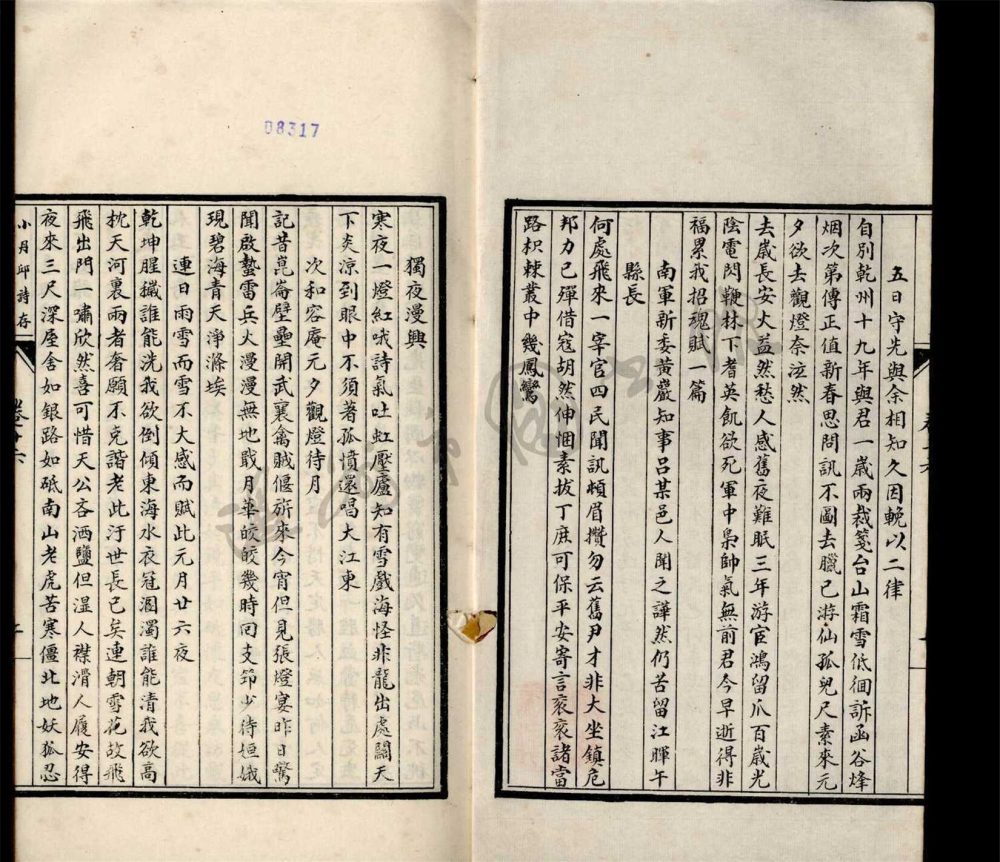 五日守先與余相知久因輓以二律
自別乾州十九年與君一歲兩裁箋台山霜雪低徊訴函谷烽
烟次第傳正值新春思問訊不圖去臘已游仙孤兒尺素來元
夕欲去觀燈奈泫然
去歲長安大益然愁人感舊夜難眠三年游宦鴻留爪百歲光
陰電閃鞭林下耆英飢欲死軍中梟帥氣無前君今早逝得非
福累我招魂賦一篇
南軍新委黃巖知事呂某邑人聞之譁然仍苦留江暉午
縣長
何處飛來一宰官四民聞訊頻眉攢勿云舊尹才非大坐鎮危
邦力已殫借寇胡然伸悃素拔丁庶可保平安寄言衮衮諸當
路枳棘叢中幾鳳鸞
獨夜漫興
寒夜一燈紅哦詩氣吐虹壓廬知有雪戲海怪非龍出處關天
下炎涼到眼中不須著孤憤還唱大江東
次和容庵元夕觀燈待月
記昔崑崙壁壘開武襄禽賊偃旂來今宵但見張燈宴昨日驚
聞啟蟄雷兵火漫漫無地戢月華皎皎幾時回支筇少待姮娥
現碧海青天淨滌埃
連日雨雪而雪不大感而賦此元月廿六夜
乾坤腥穢誰能洗我欲倒傾東海水衣冠溷濁誰能清我欲高
枕天河裏兩者奢願不克諧老此汙世長已矣連朝雪花故飛
飛出門一嘯欣然喜可惜天公吝洒鹽但濕人襟滑人履安得
夜來三尺深屋舍如銀路如砥南山老虎苦寒僵北地妖狐忍
小月邱詩存
卷十六
08317